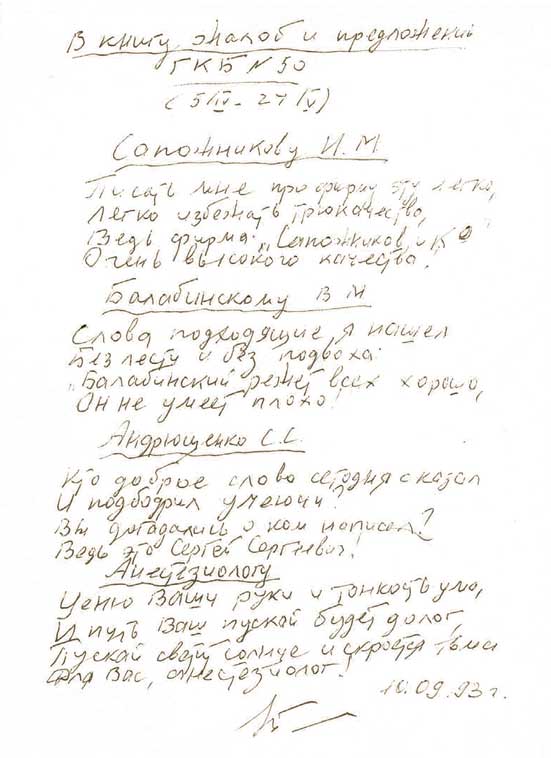 В книгу жалоб и предложений
ГКБ N 50
(5/IV - 27/IV)
Сапожникову И.М
Писать мне про фирму эту легко,
Легко избежать трюкачества,
Ведь фирма: „Сапожников и К°"
Очень высокого качества!
Балабинскому В М
Слова подходящие, я нашел
Без лести и без подвоха:
„Балабинский режет всех хорошо,
Он не умеет плохо!
Андрющенко С.С.
Кто доброе слово сегодня сказал
И подбодрил умеючи?
Вы догадались о ком написал?
Ведь это Сергей Сергеевич!
Анестезиологу
Ценю Ваши руки и тонкость ума,
И путь Ваш пускай будет долог,
Пускай светит солнце и скроется тьма
Для Вас, анестезиолог!
10.09.93г.